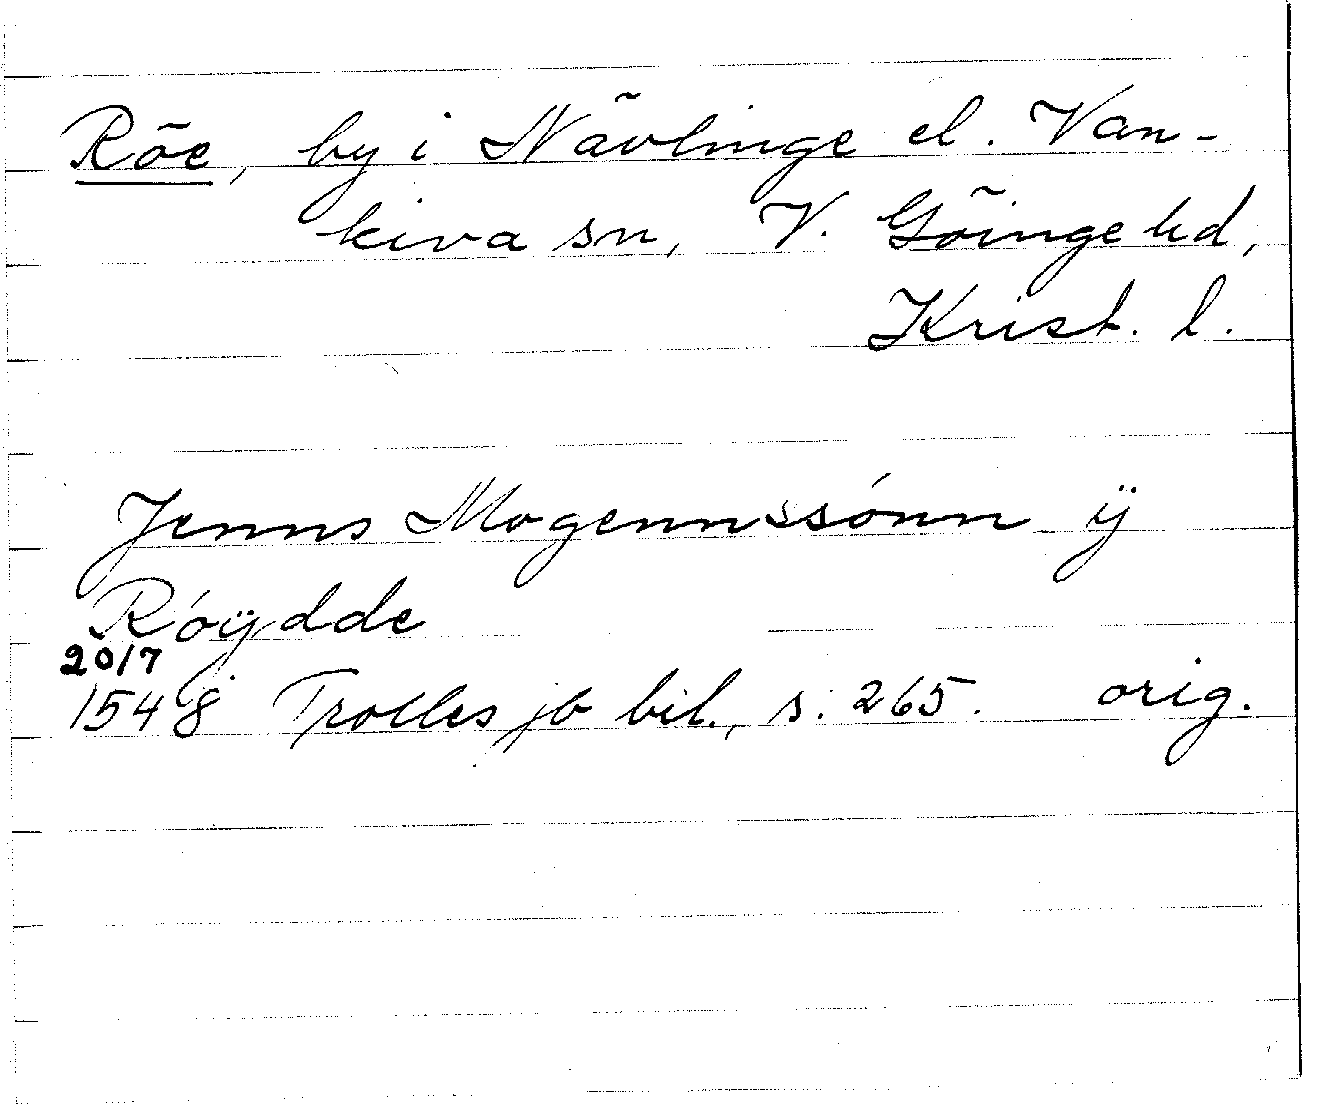 Röe, by i Nävlinge el. Van-
kiva sn, V. Göinge hd,
Krist. l.
Jenns Mogennssónn ÿ
Róÿdde
20/7
1548 Trolles jb bil., s. 265. orig.